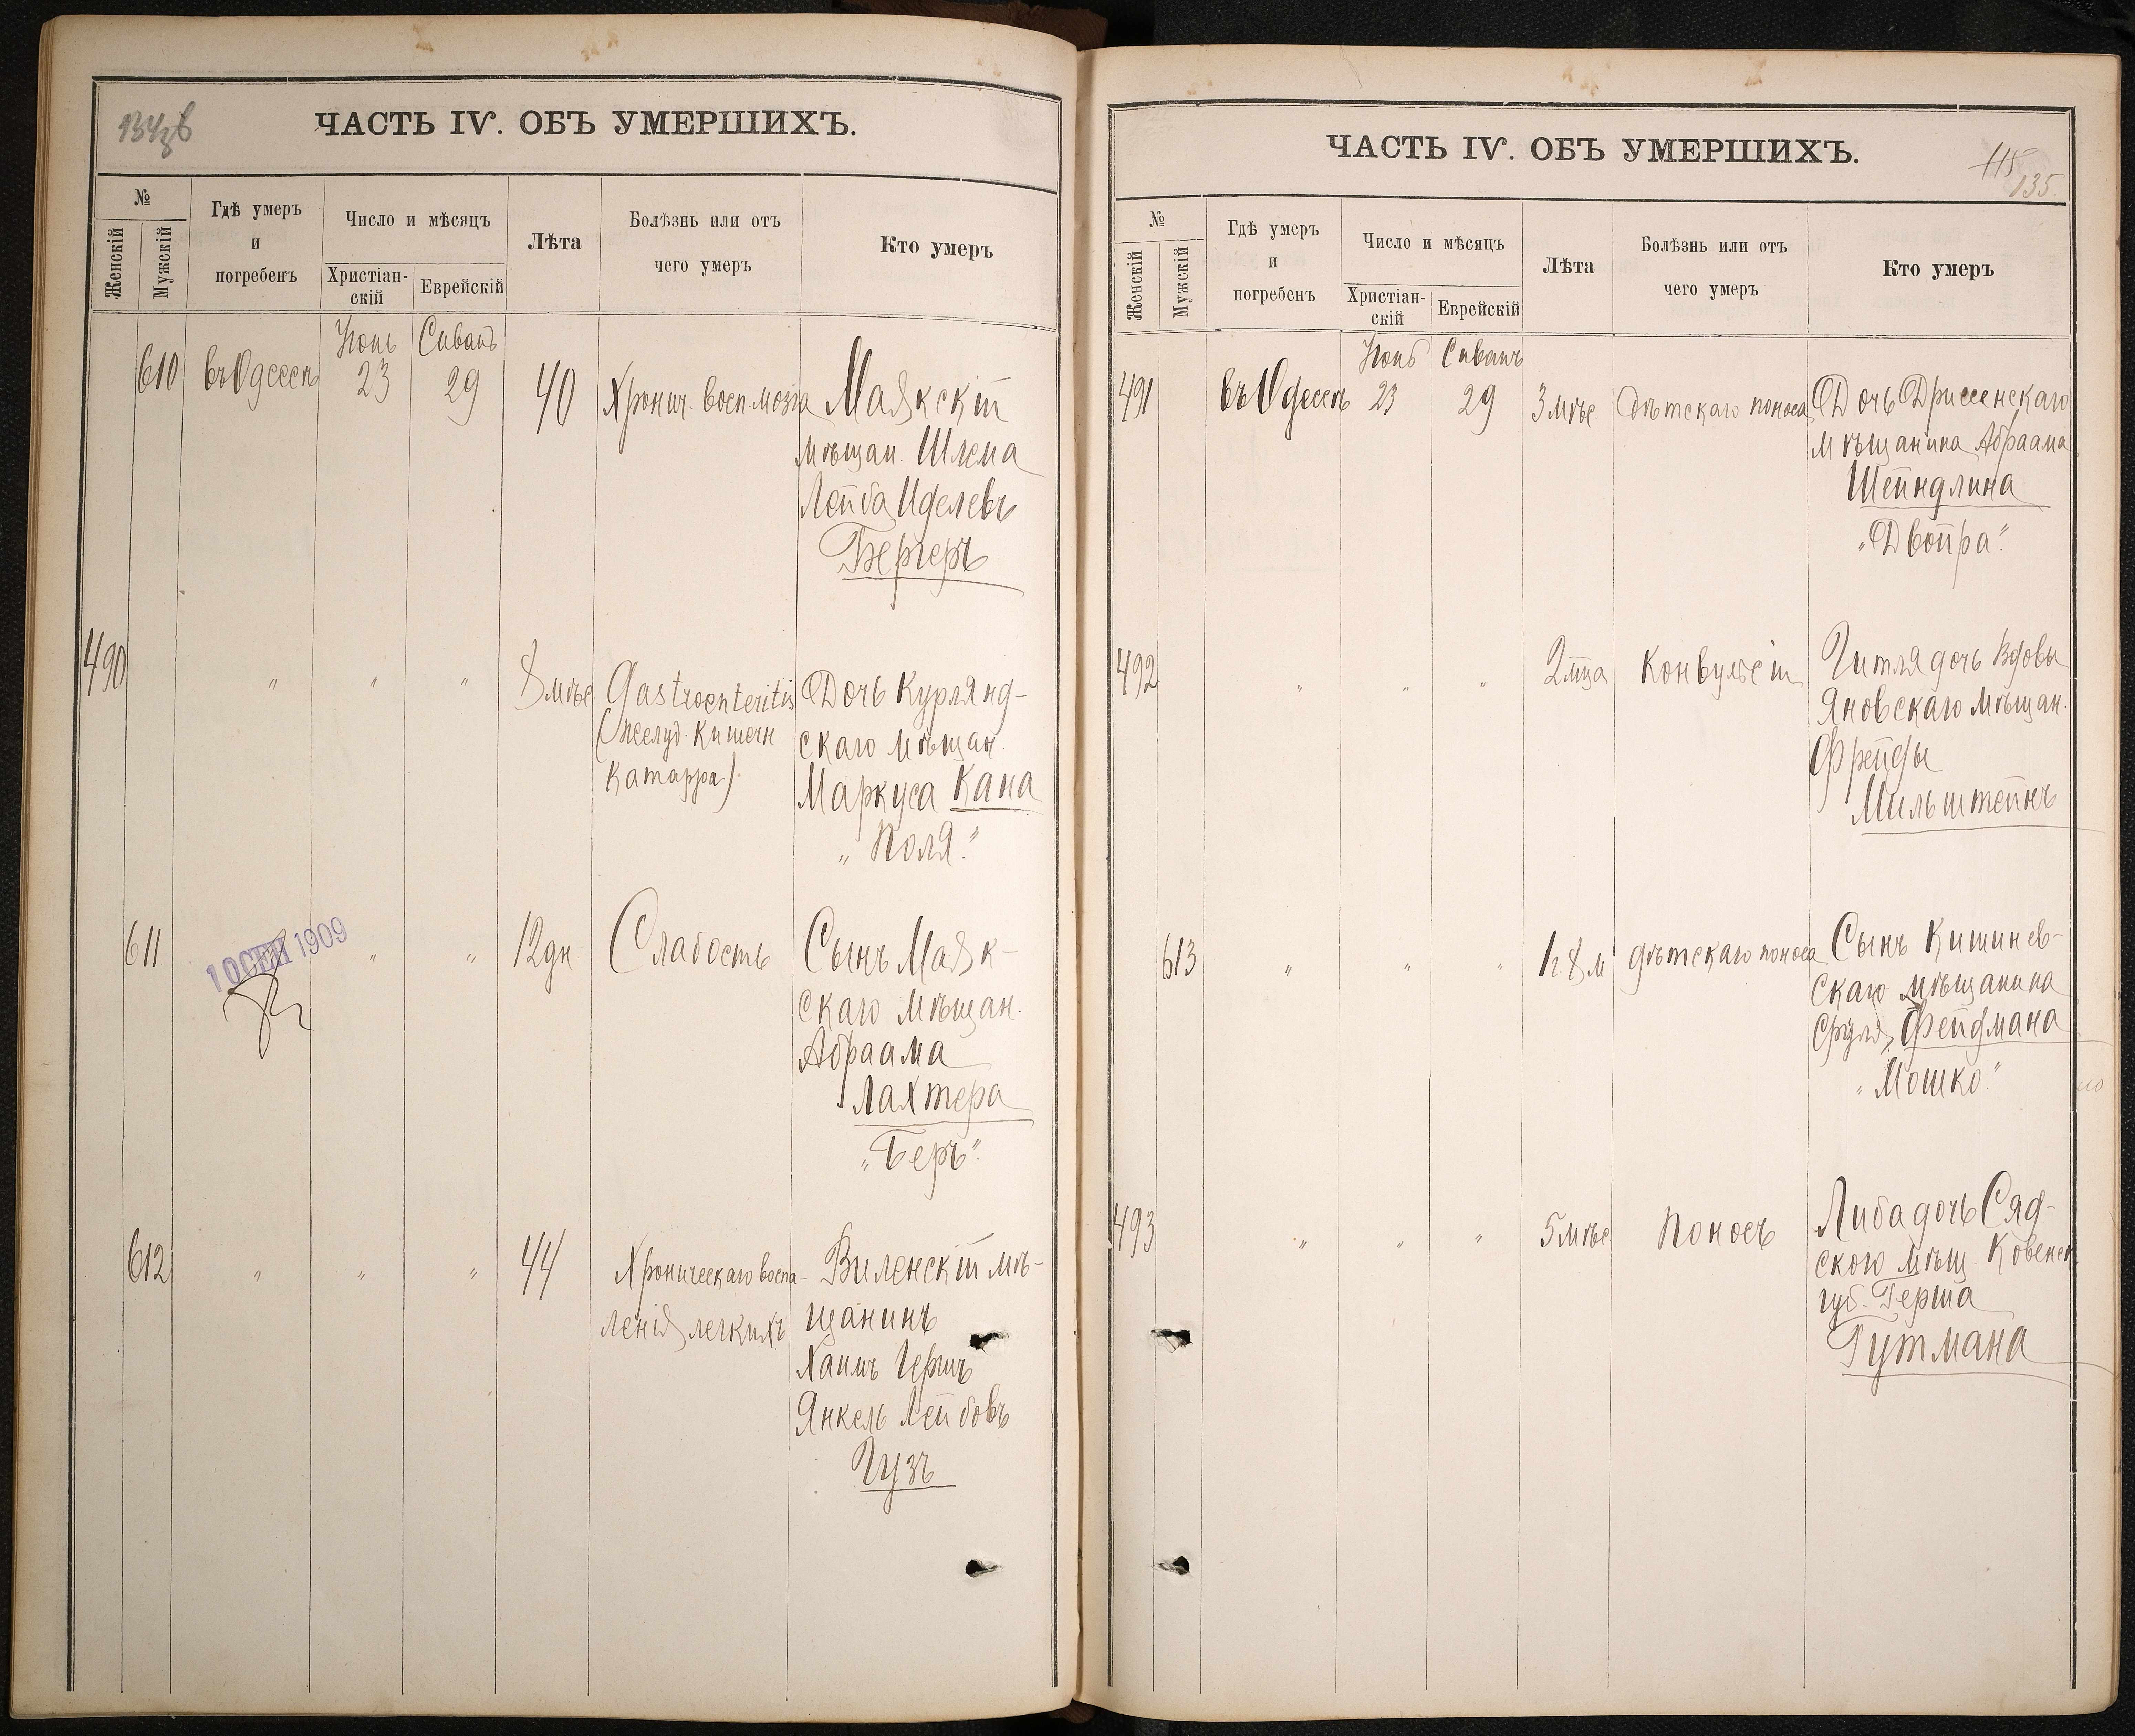 ЧАСТЬ IV. ОБЪ УМЕРШИХЪ.
№
Женскій
Мужскій
Гдѣ умеръ
и
погребенъ
Число и мѣсяцъ
Христіан-
скій
Еврейскій
Лѣта
Болѣзнь или отъ
чего умеръ
Кто умеръ
Іюнь Сиванъ
610 въ Одессѣ 23 29 40 Хронич. восп. мозга Маякскій
мѣщан. Шлема
Лейба Иделевъ
Бергеръ
490 " " " 8 мѣс. Gastroenteritis Дочь Курлянд-
(желуд. кишечн. скаго мѣщан.
катарра). Маркуса Кана
„Поля."
611 10 СЕН 1909 " " 12 дн. Слабость Сынъ Маяк-
скаго мѣщан.
Абраама
Лахтера
„Беръ".
612 " " " 44 Хроническаго воспа- Виленскій мѣ-
ленія легкихъ щанинъ
Хаимъ Гершъ
Янкель Лейбовъ
Гузъ
ЧАСТЬ IV. ОБЪ УМЕРШИХЪ.
115
135.
№
Женскій
Мужскій
Гдѣ умеръ
и
погребенъ
Число и мѣсяцъ
Христіан-
скій
Еврейскій
Лѣта
Болѣзнь или отъ
чего умеръ
Кто умеръ
Іюнь Сиванъ
491 въ Одессѣ 23 29 3 мѣс. Дѣтскаго поноса Дочь Дриссенскаго
мѣщанина Абраама
Шейндлина
„Двойра".
492 " " " 2 мца Конвульсій Гитля дочь вдовы
Яновскаго мѣщан.
Фрейды
Мильштейнъ
613 " " " 1 г 8 м. дѣтскаго поноса Сынъ Кишинев-
скаго мѣщанина
Сруля Фейдмана
„Мошко."
493 " " " 5 мѣс. Поносъ Либа дочь Сяд-
ского мѣщ. Ковенск.
губ. Герша
Гутмана